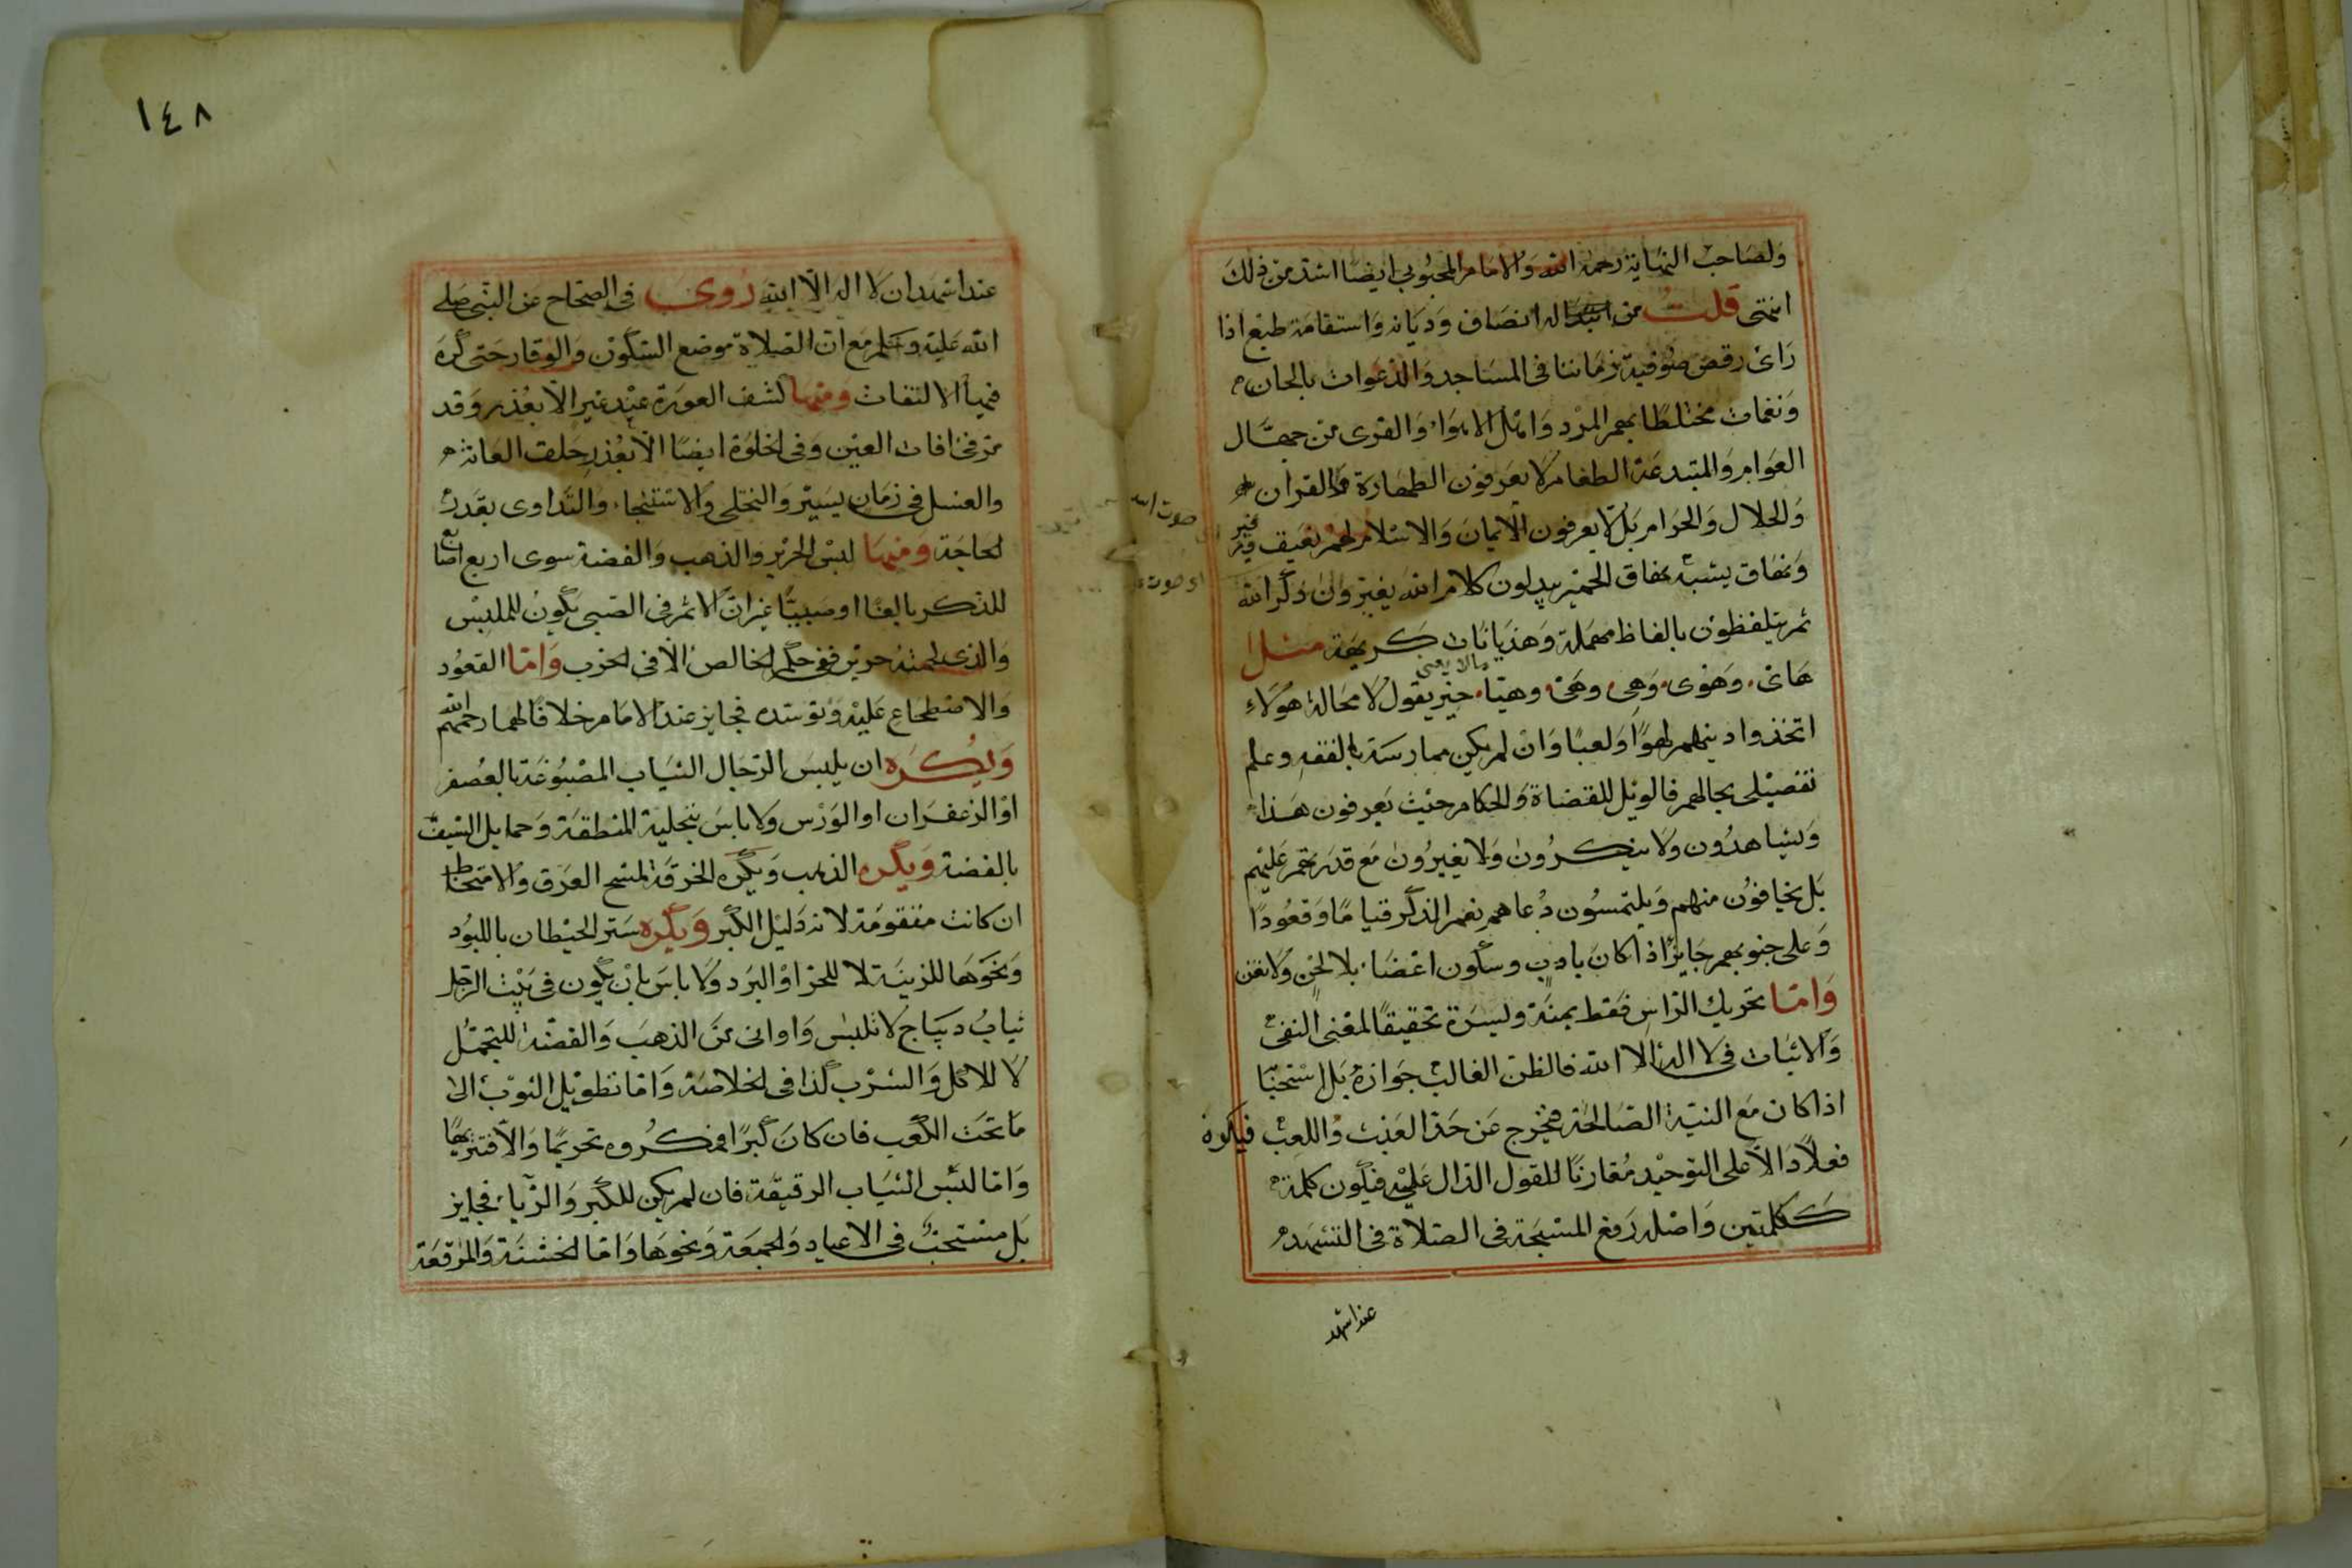 ولصاحب النهاية رحمه الله والامام المحبوبي ايضا اشد من ذلك
انتهى قلت من له انصاف وديانة واستقامة طبع اذا
راى رقص صوفية زماننا في المساجد والدعوات بالحان
ونغمات مختلطا بهم المرد واهل الاهواء والقرى من جهال
العوام والمبتدعة الطغام لا يعرفون الطهارة والقران
والحلال والحرام بل لا يعرفون الايمان والاسلام لهم نعيق
ونهاق يشبه نهاق الحمير يبدلون كلام الله يغيرون ذكر الله
ثم يتلفظون بالفاظ مهملة وهذيانات كريهة مثل
مالا يعنى
هاى وهوى وهى وهى وهيا يقول لا محالة هؤلاء
اتخذوا دينهم لهوا ولعبا وان لم يكن ممارسة بالفقه وعلم
تفصيلى بحالهم فالويل للقضاة والحكام حيث يعرفون هذا
ويشاهدون ولا ينكرون ولا يغيرون مع قدرتهم عليهم
بل يخافون منهم ويلتمسون دعاهم نعم الذكر قياما وقعودا
وعلى جنوبهم جايز اذا كان بادب وسكون اعضاء بلا لحن ولا تغن
واما تحريك الراس فقط يمنة ويسرة تحقيقا لمعنى النفى
والاثبات في لا اله الا الله فالظن الغالب جوازه بل استحبا
اذا كان مع النية الصالحة فيخرج عن حد العبث واللعب فيكون
فعلا دالا على التوحيد مقارنا للقول الدال عليه فيكون كلمة
ككلمتين واصله رفع المسبحة في الصلاة في التشهد
عند اشهد
١٤٨
عند اشهد ان لا اله الا الله روى في الصحاح عن النبى صلى
الله عليه وسلم مع ان الصلاة موضع السكون والوقار حتى كره
فيها الالتفات ومنها كشف العورة عند غير الا بعذر وقد
مر في افات العين وفي الخلوة ايضا الا بعذر حلق العانة
والغسل في زمان يسير والتخلى والاستنجاء والتداوى بقدر
لحاجة ومنها لبس الحرير والذهب والفضة سوى اربع اصابع
للذكر بالغا او صبيا غير ان الاثم في الصبى يكون للملبس
والذى لحمته حرير ففى حكم الخالص الا في الحرب واما القعود
والاضطجاع عليه وتوسده فجايز عند الامام خلافا لهما رحمهم الله
ويكره ان يلبس الرجال الثياب المصبوغة بالعصفر
او الزعفران او الورس ولا باس بتحلية المنطقة وحمايل السيف
بالفضة ويكره الذهب ويكره الخرقة لمسح العرق والامتخاط
ان كانت متقومة لانه دليل الكبر ويكره ستر الحيطان باللبود
ونحوها للزينة لا للحر او البرد ولا باس بان يكون في بيت الرجل
ثياب ديباج لا تلبس واوانى من الذهب والفضة للتجمل
لا للاكل والشرب كذا في الخلاصة واما تطويل الثوب الى
ما تحت الكعب فان كان كبرا فمكروه تحريما والا فتنزيها
واما لبس الثياب الرقيقة فان لم يكن للكبر والرياء فجايز
بل مستحب في الاعياد والجمعة ونحوها واما الخشنة والمرقعة